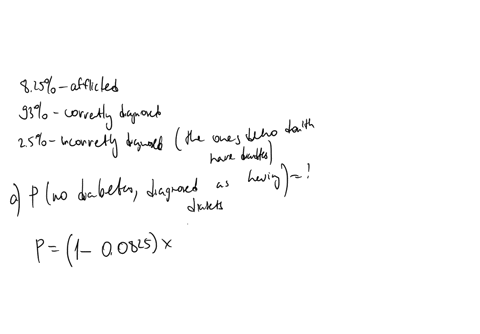 8.25% - afflicted
93% - correctly diagnosed
2.5% - incorrectly diagnosed (the ones who don't
have diabetes)
a) P (no diabetes, diagnosed as having) = ?
diabetes
P = (1 - 0.0825) ×